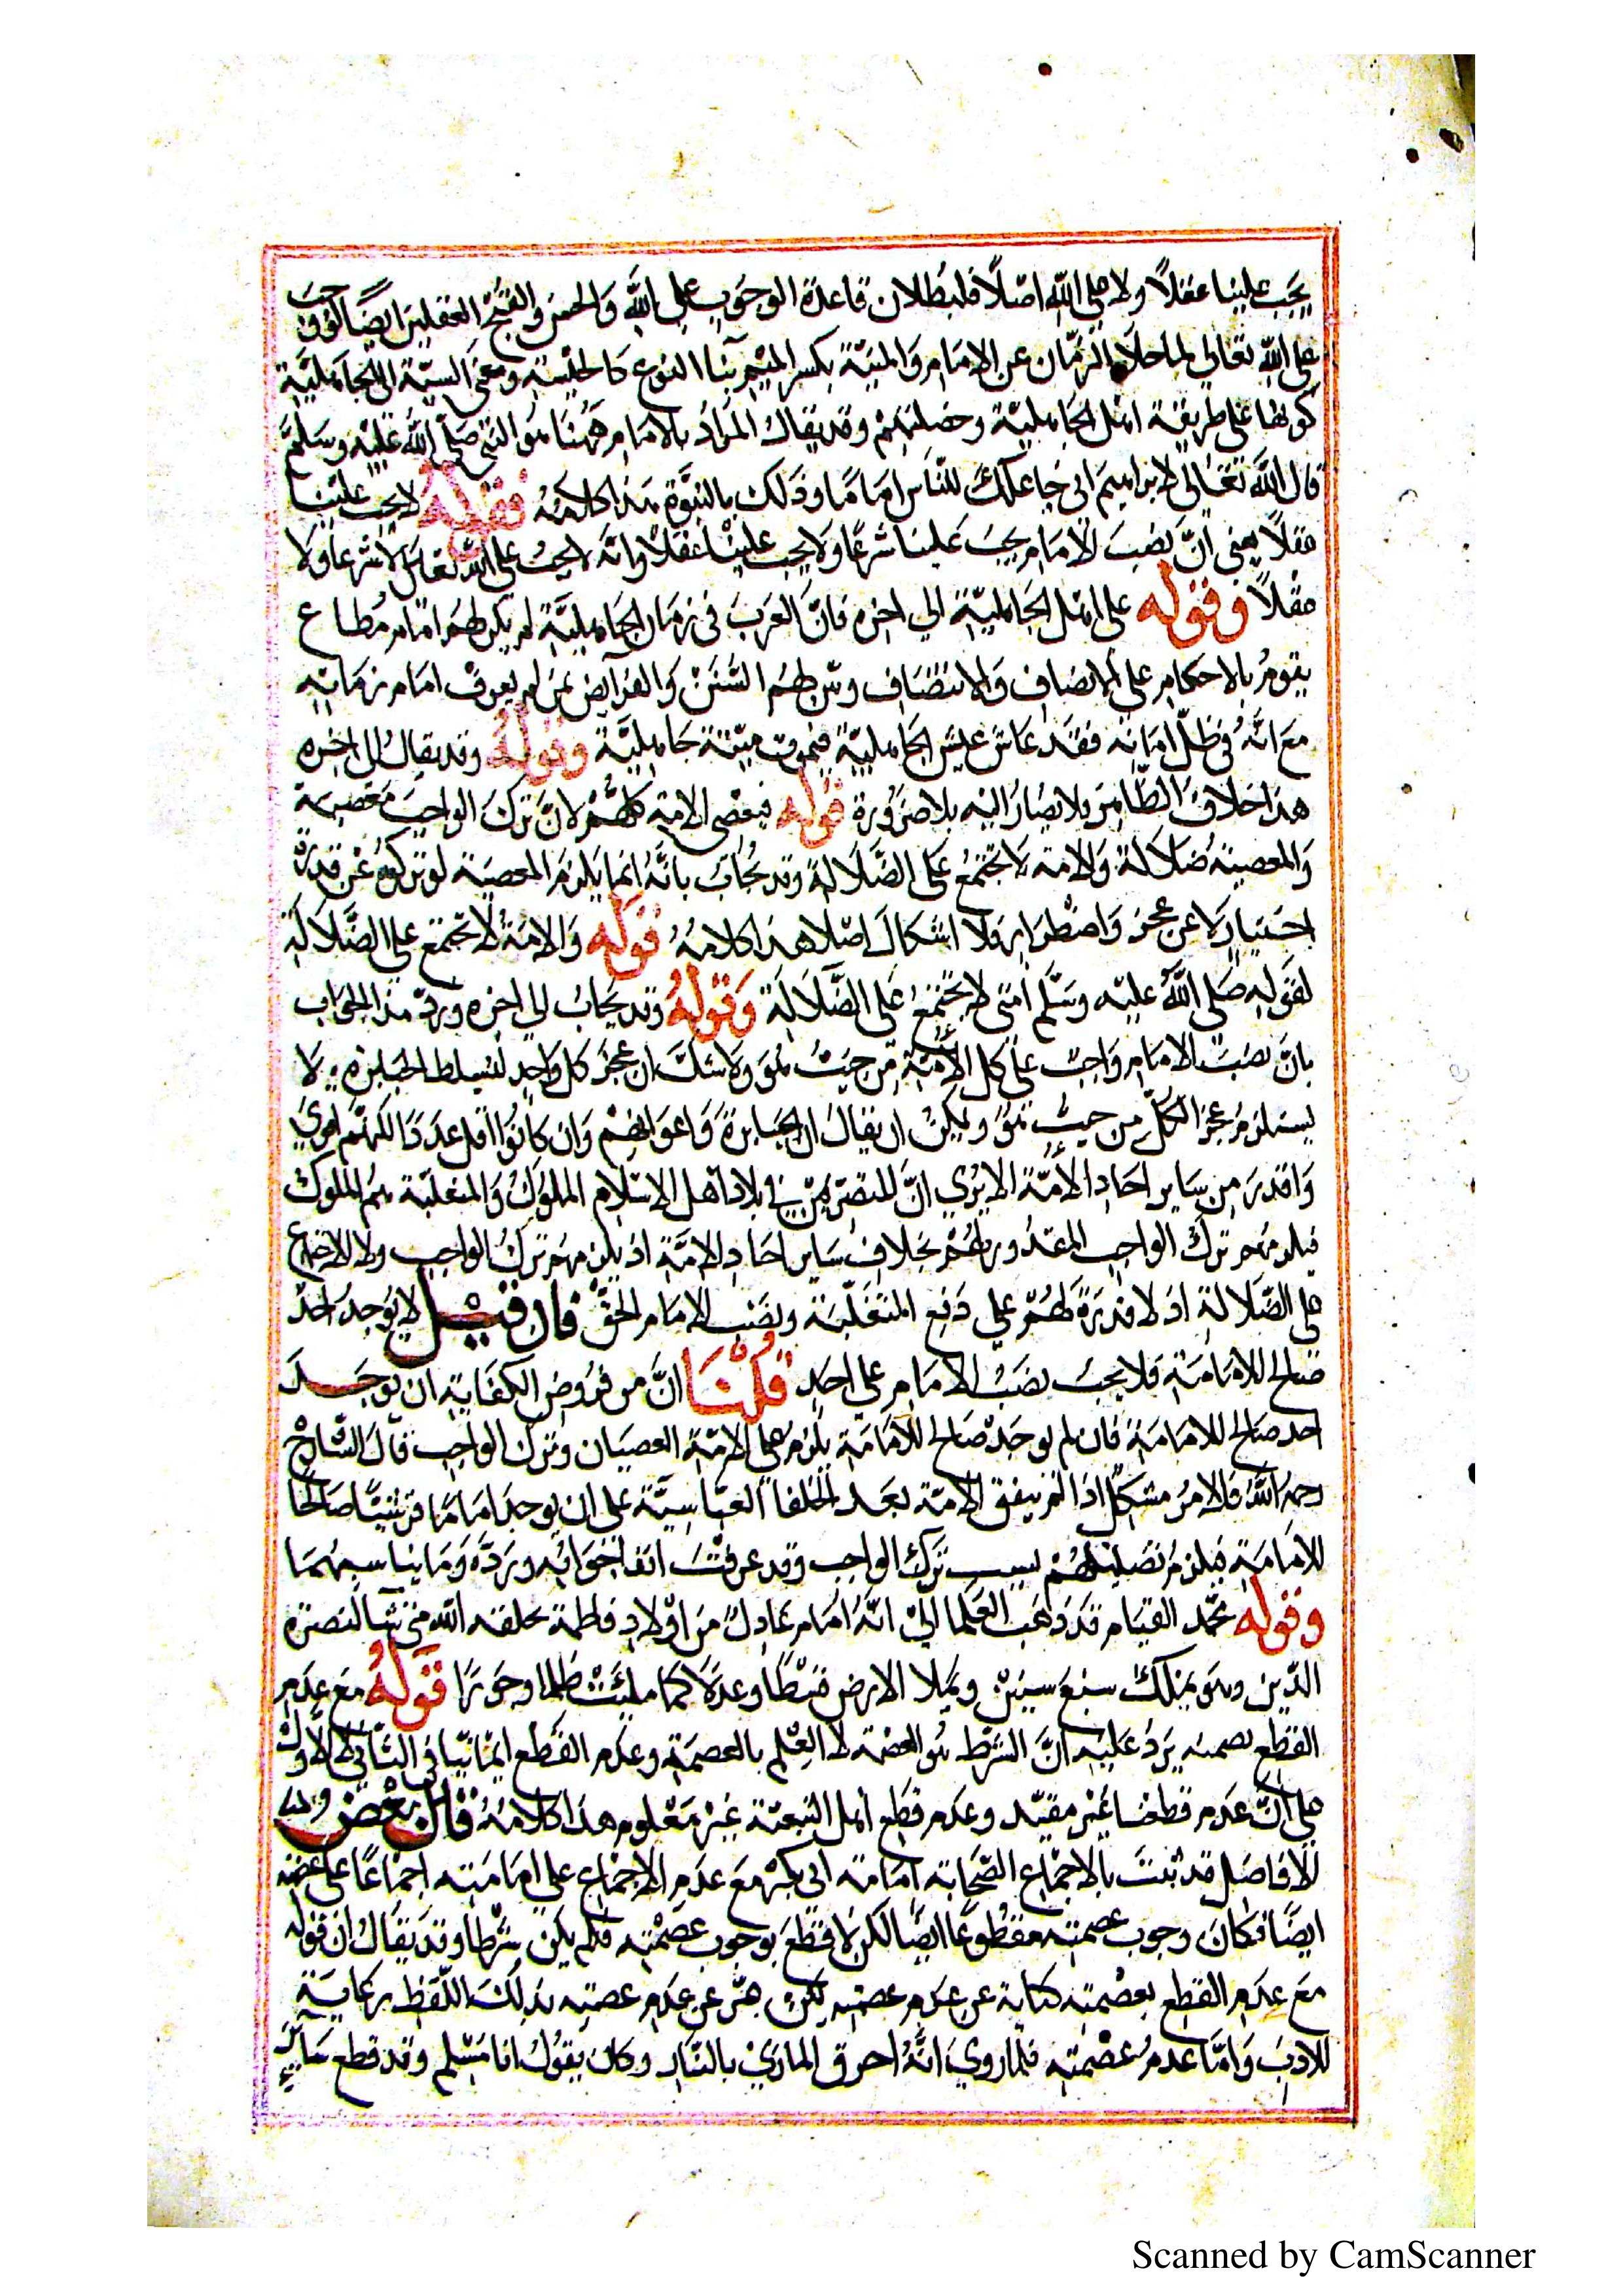 يجب علينا عقلاً ولا على الله اصلاً فلبطلان قاعدة الوجوب على الله والحسن والقبح العقليين ايضاً لو وجب
على الله تعالى لما خلا الزمان عن الامام والميتة بكسر الميم بناء النوع كالجلسة ومعنى النسبة الى الجاهلية
كونها على طريقة اهل الجاهلية وخصلتهم وقد يقال المراد بالامام ههنا هو النبي صلى الله عليه وسلم
قال الله تعالى لابراهيم انى جاعلك للناس اماما وذلك بالنبوة هذا كلامه فقوله لا يجب علينا
عقلاً يعنى ان نصب الامام يجب علينا شرعا ولا يجب علينا عقلاً وانه لا يجب على الله تعالى لا شرعا ولا
عقلاً وقوله على اهل الجاهلية الي اخره فان العرب في زمان الجاهلية لم يكن لهم امام مطاع
يقوم بالاحكام على الانصاف والانتصاف وتبين لهم السنن والفرايض فمن لم يعرف امام زمانه
مع انه في ظل امانه فقد عاش عيش الجاهلية فيموت ميتة جاهلية وقوله وقد يقال الى اخره
هذا خلاف الظاهر ولا يصار اليه بلا ضرورة قوله فيعصى الامة كلهم لان ترك الواجب معصية
والمعصية ضلالة والامة لا تجتمع على الضلالة وقد يجاب بانه انما يلزم المعصية لو تركوه عن قدرة
واختيار لا عن عجز واضطرار فلا اشكال اصلا هذا كلامه قوله والامة لا تجتمع على الضلالة
لقوله صلى الله عليه وسلم امتى لا تجتمع على الضلالة وقوله وقد يجاب الى اخره ورد هذا الجواب
بان نصب الامام واجب على كل الامة من حيث هو ولا شك ان عجز كل واحد لتسلط الجبابرة لا
يستلزم عجز الكل من حيث هو ويمكن ان يقال ان الجبابرة واعوانهم وان كانوا اقل عددا لكنهم اقوى
واقدر من ساير احاد الامة الا يرى ان المتصرفين في بلاد اهل الاسلام الملوك والمتغلبة هم الملوك
فيلزمهم ترك الواجب المقدور لهم بخلاف ساير احاد الامة اذ يلزمهم ترك الواجب ولا الاجتماع
على الضلالة اذ لا قدرة لهم على دفع المتغلبة ونصب الامام الحق فان قيل لا يوجد احد
صالح للامامة فلا يجب نصب الامام على احد قلنا ان من فروض الكفاية ان يوجد
احد صالح للامامة فان لم يوجد صالح للامامة يلزم على الامة العصيان وترك الواجب قال الشارح
رحمه الله فالامر مشكل اذا لم يتفق الامة بعد الخلفا العباسية على ان يوجد اماما قرشيا صالحا
للامامة فيلزم تضليلهم بسبب ترك الواجب وقد عرفت انفا جوابه ورده وما يناسبهما
وقوله محمد القيام فقد ذهب العلما الى انه امام عادل من اولاد فاطمة يخلقه الله متى شا لنصرة
الدين وهو يملك سبع سنين ويملا الارض قسطا وعدلا كما ملئت ظلما وجورا قوله مع عدم
القطع بعصمته يرد عليه ان الشرط هو العصمة لا العلم بالعصمة وعدم القطع انما ينافى الثانى لا الاول
على ان عدم قطعنا غير مقيد وعدم قطع اهل البيعة غير معلوم هذا كلامه قال بعض
الافاضل قد ثبت بالاجماع الصحابة امامة ابى بكر مع عدم الاجماع على امامته اجماعا على عصمته
ايضا فكان وجوب عصمته مقطوعا ايضا لكن لا قطع بوجوب عصمته فلم يكن شرطا وقد يقال ان قوله
مع عدم القطع بعصمته كناية عن عدم عصمته لكن عبر عن عدم عصمته بذلك اللفظ رعاية
للادب واما عدم عصمته فلما روي انه احرق المازني بالنار وكان يقول انا مسلم وقد قطع يسار
Scanned by CamScanner